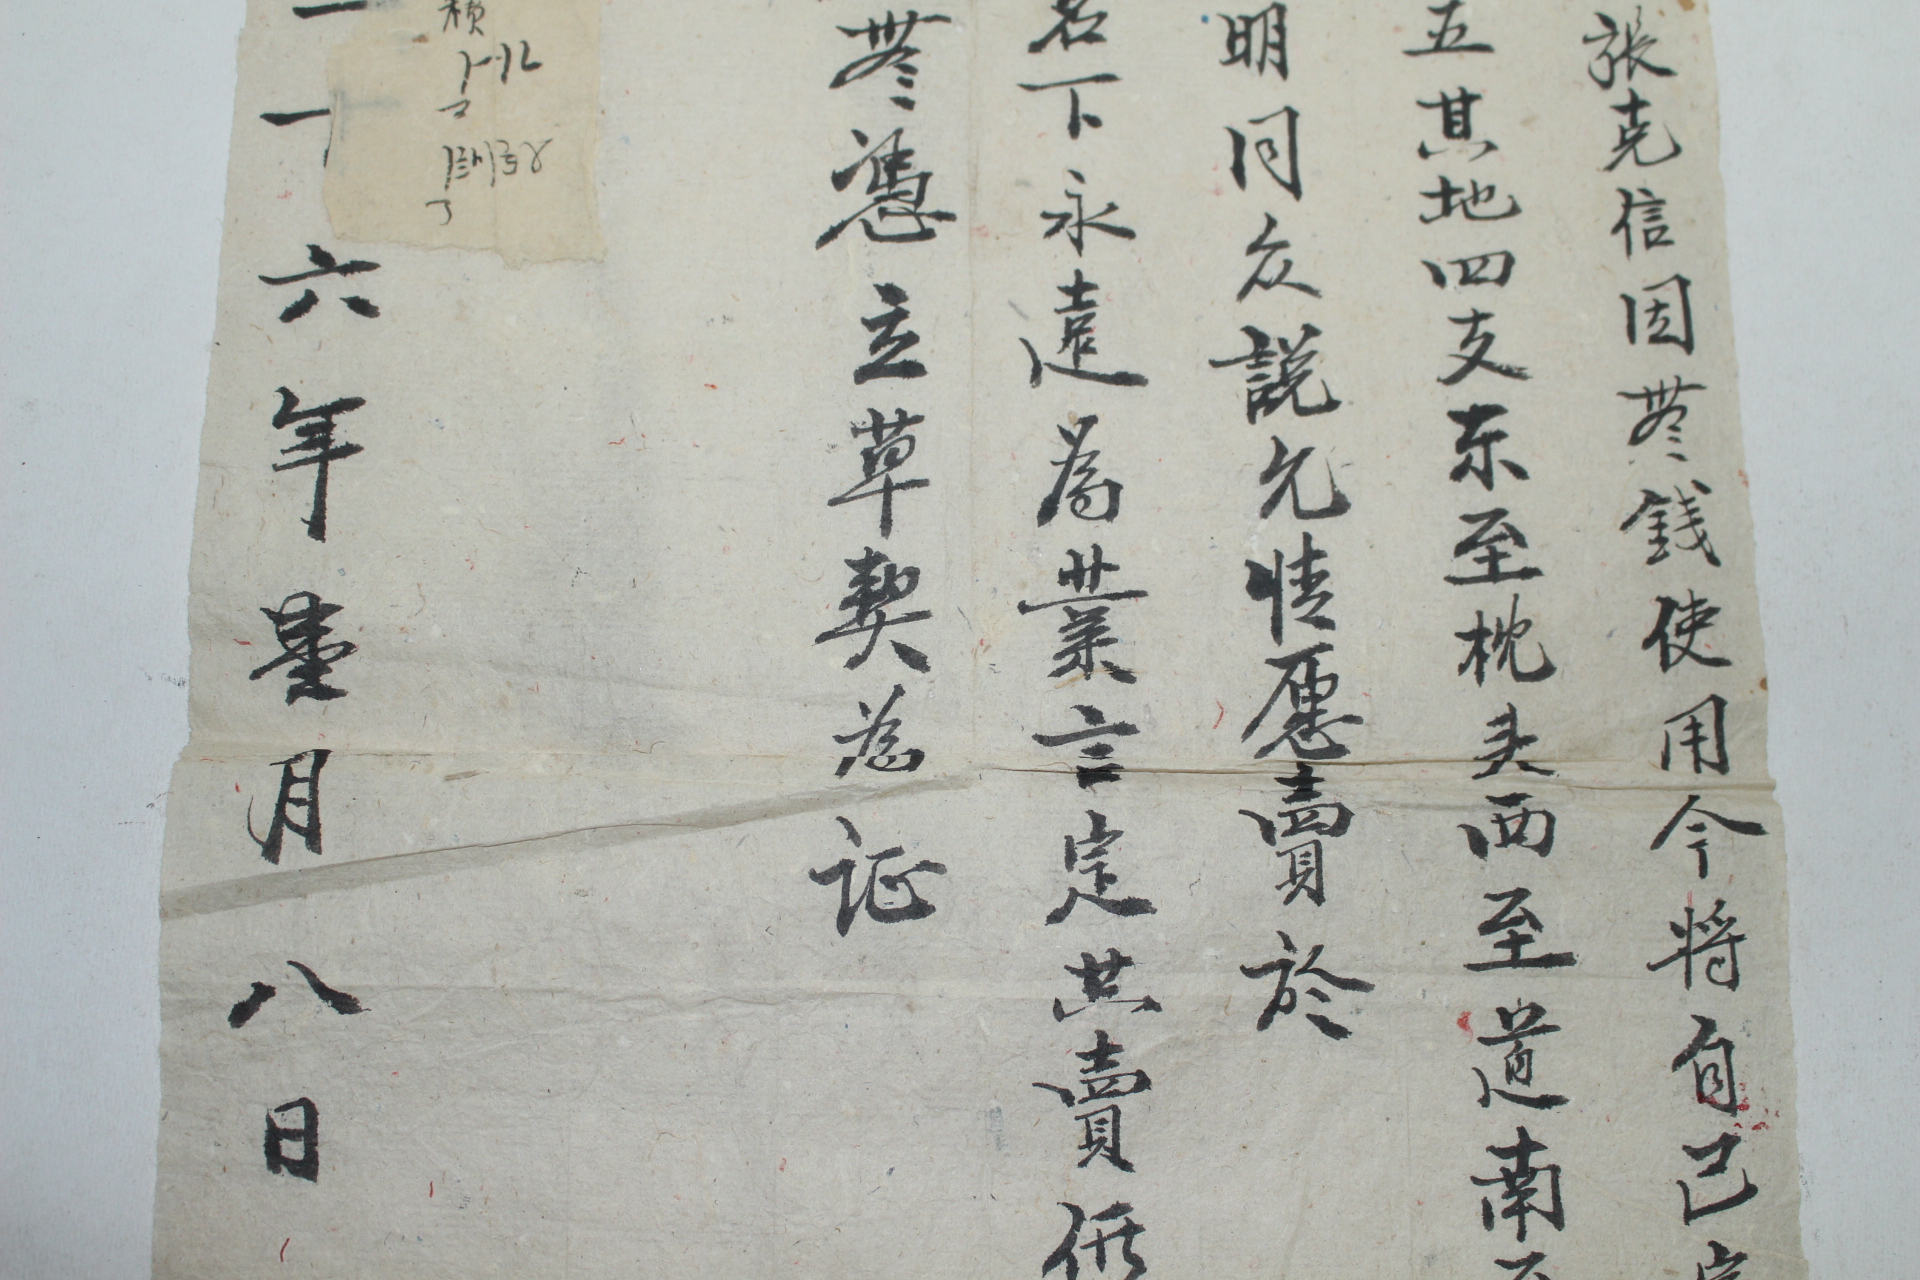 張克信因無錢使用今將自己
五其地四支东至枕头西至道南至
明同众説允情愿賣於
名下永遠為業言定共賣價
無憑立草契為证
十六年臺月八日